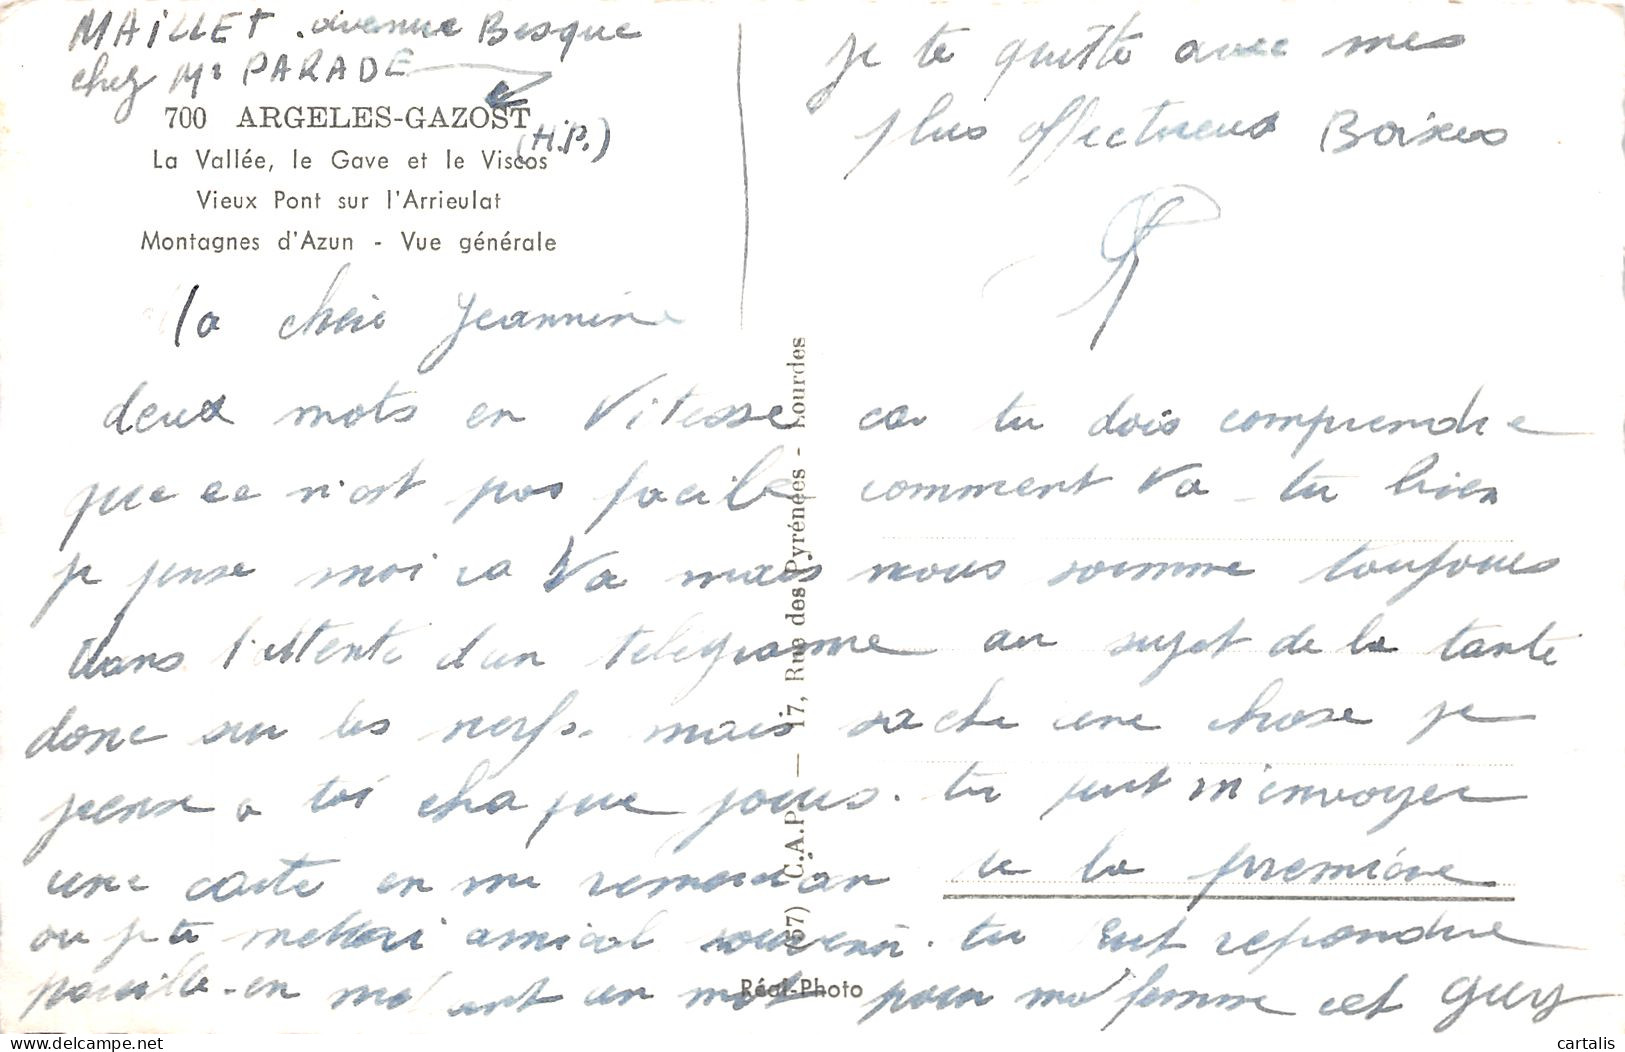 MAILLET . avenue Besque
chez Mr PARADE
700 ARGELES-GAZOST
(H.P.)
La Vallée, le Gave et le Viscos
Vieux Pont sur l'Arrieulat
Montagnes d'Azun - Vue générale
je te quitte avec mes
plus affectueux Baises
Ma cheri Jeannine
deux mots en Vitesse car tu dois comprendre
que ce n'est pas facile comment Va-tu bien
je pense moi sa Va mais nous somme toujours
dans l'attente d'un telegramme au sujet de la tante
donc sur les nerfs. mais sache une chose je
pense a toi chaque jours. tu peut m'envoyer
une carte en me remercian de la première
ou je te mettrai amical souvenir. tu peut repondre
pareille-en me un mot pour ma femme et Guy
C.A.P. — 17, Rue des Pyrénées - Lourdes
Réal-Photo
delcampe.net
cartalis